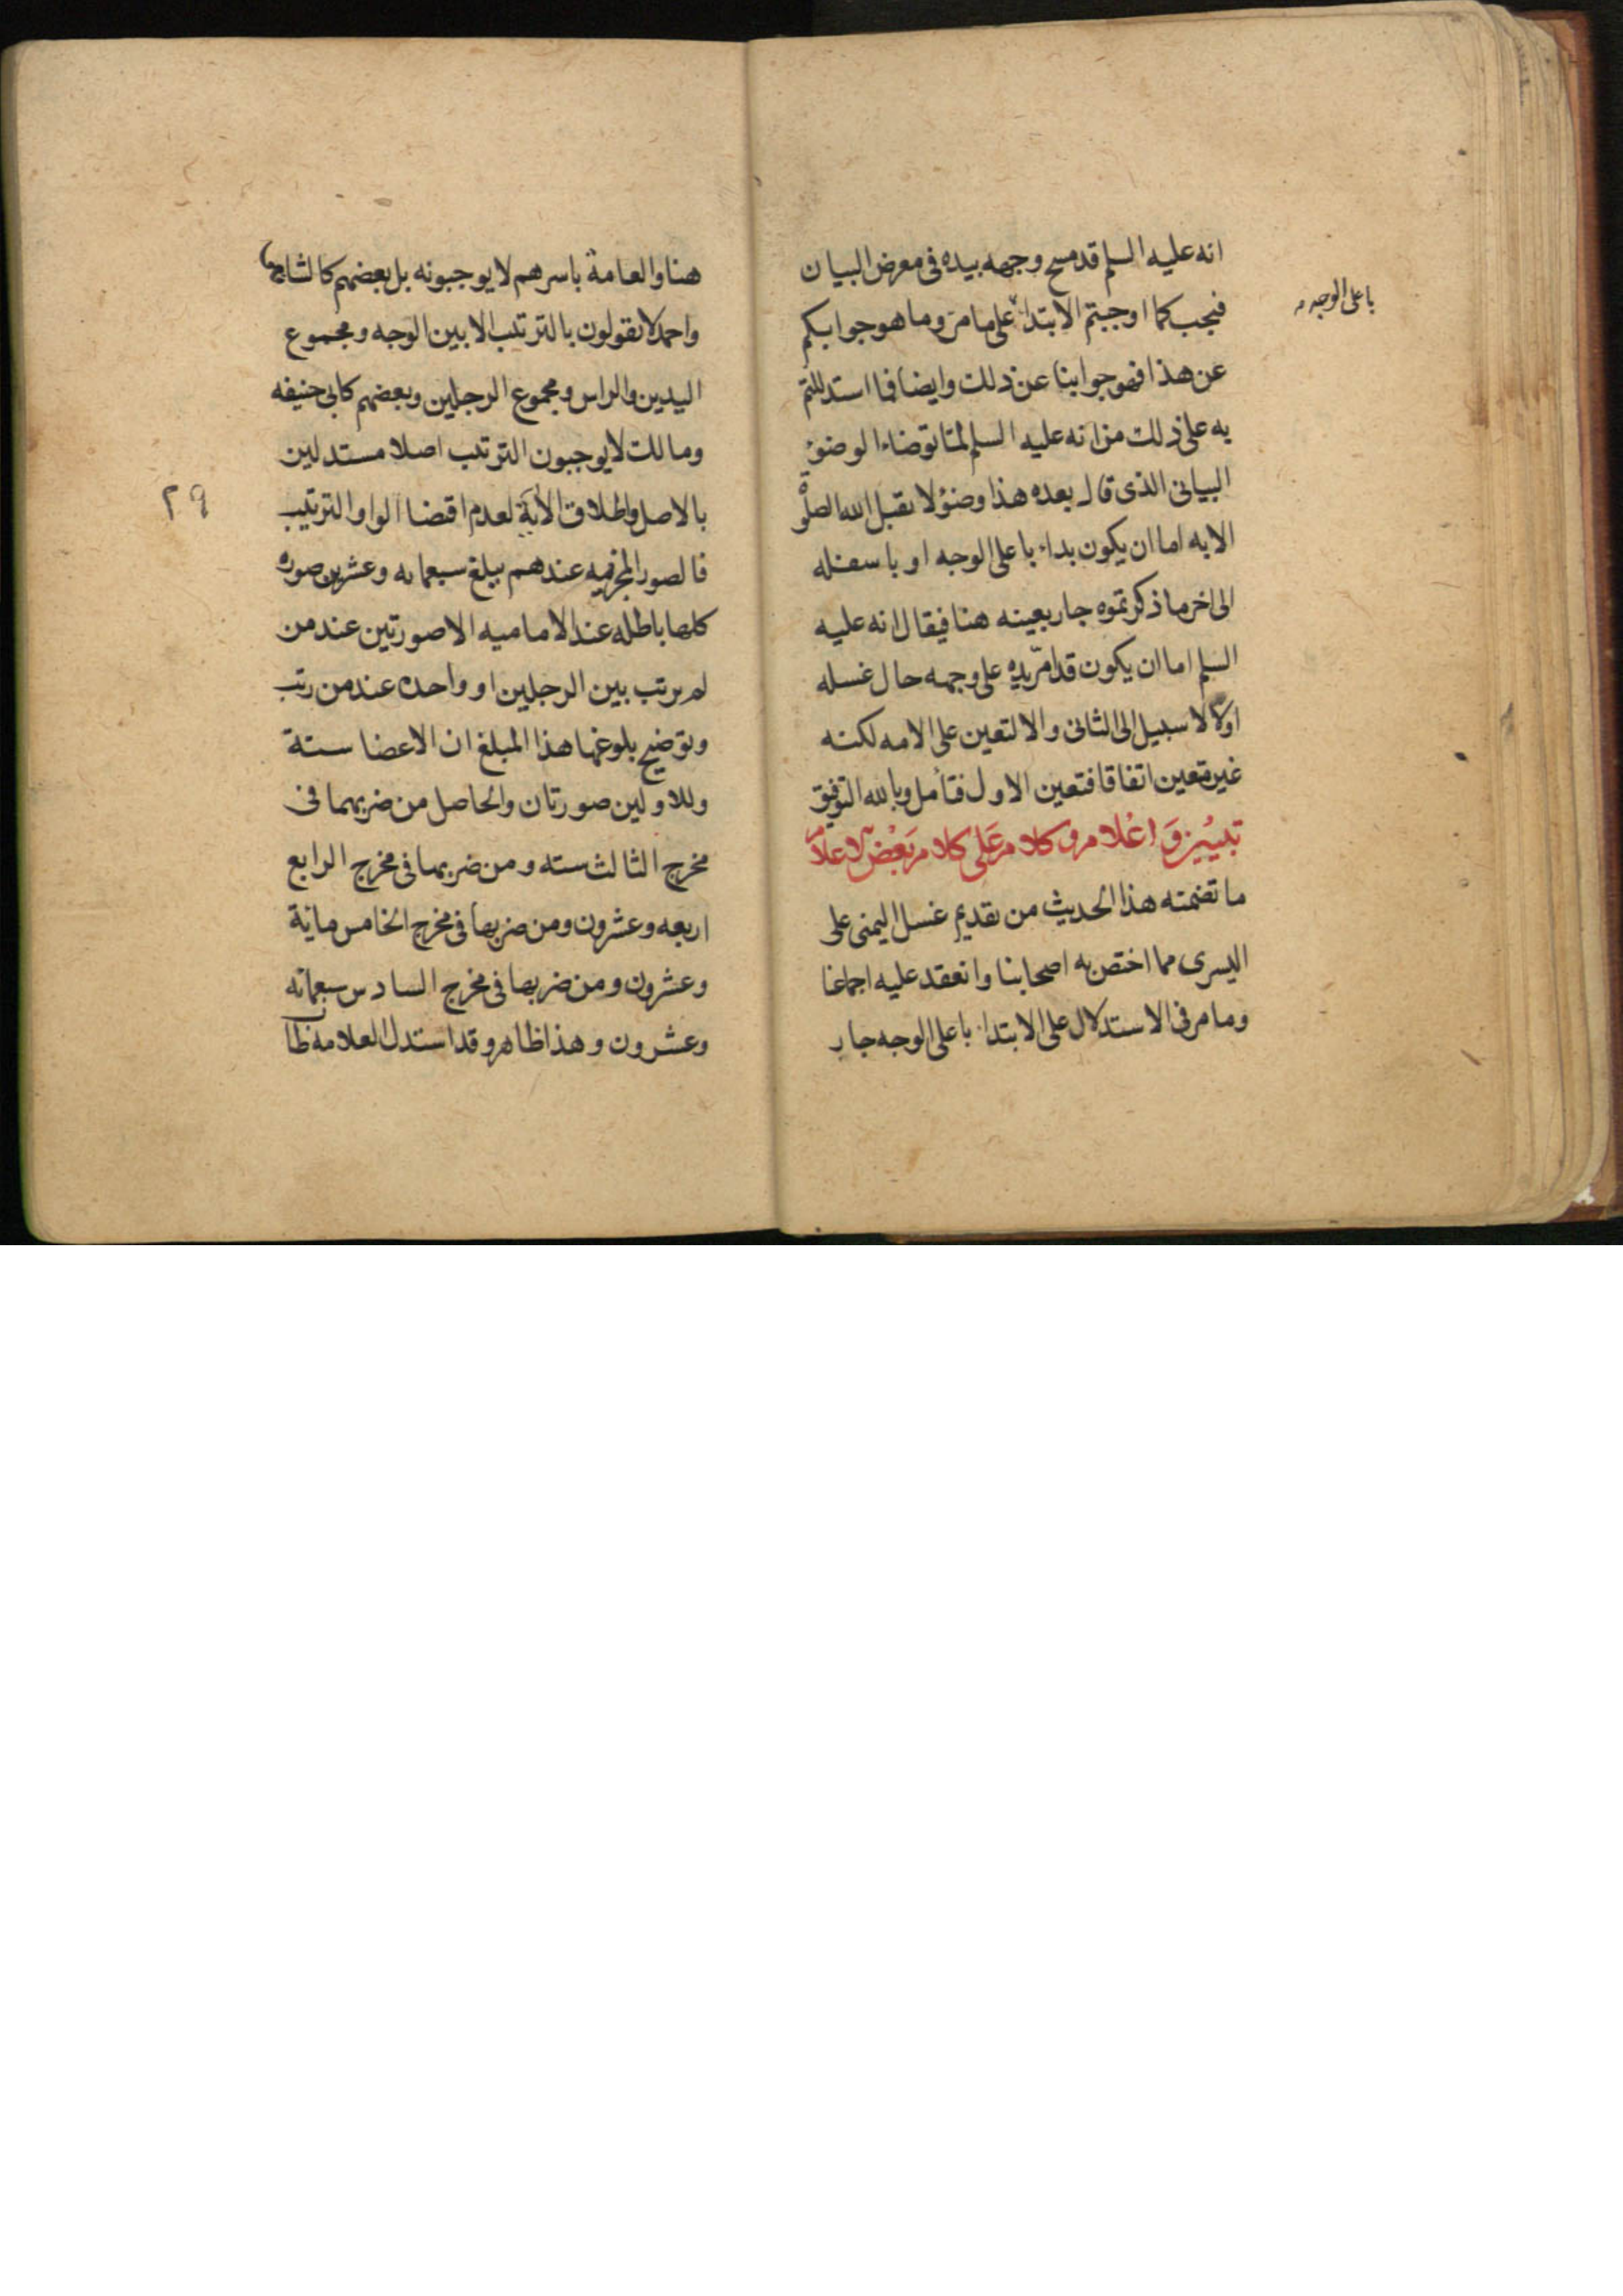 انه عليه السلم قد مسح وجهه بيده فى معرض البيان
فيجب كما اوجبتم الابتداء على مامر وما هو جوابكم
باعلى الوجه
عن هذا فهو جوابنا عن ذلك وايضا فما استدللتم
به على ذلك من انه عليه السلم لمّا توضاء الوضوء
البيانى الذى قال بعده هذا وضوء لا يقبل الله الصلوة
الا به اما ان يكون بداء باعلى الوجه او باسفله
الى اخر ما ذكرتموه جار بعينه هنا فيقال انه عليه
السلم اما ان يكون قد امرّ يده على وجهه حال غسله
اولا لا سبيل الى الثانى والا لتعين على الامه لكنه
غير متعين اتفاقا فتعين الاول فتأمل وبالله التوفيق
تبيين وَاعْلام وكلام عَلى كلام بَعْض الاعلام
ما تضمنته هذا الحديث من تقديم غسل اليمنى على
اليسرى مما اختص به اصحابنا وانعقد عليه اجماعنا
وما مر فى الاستدلال على الابتداء باعلى الوجه جار
هنا والعامة باسرهم لا يوجبونه بل بعضهم كالشافعى
واحمد لا يقولون بالترتيب الا بين الوجه ومجموع
اليدين والراس ومجموع الرجلين وبعضهم كابى حنيفه
ومالك لا يوجبون الترتيب اصلا مستدلين
بالاصل واطلاق الآية لعدم اقتضا الواو الترتيب
٢٩
فالصور المجزيه عندهم يبلغ سبعمايه وعشرين صوره
كلها باطله عند الاماميه الا صورتين عند من
لم يرتب بين الرجلين او واحده عند من رتب
وتوضيح بلوغها هذا المبلغ ان الاعضا ستة
وللاولين صورتان والحاصل من ضربهما فى
مخرج الثالث سته ومن ضربها فى مخرج الرابع
اربعه وعشرون ومن ضربها فى مخرج الخامس مائة
وعشرون ومن ضربها فى مخرج السادس سبعمائه
وعشرون وهذا ظاهر وقد استدل العلامه طاب